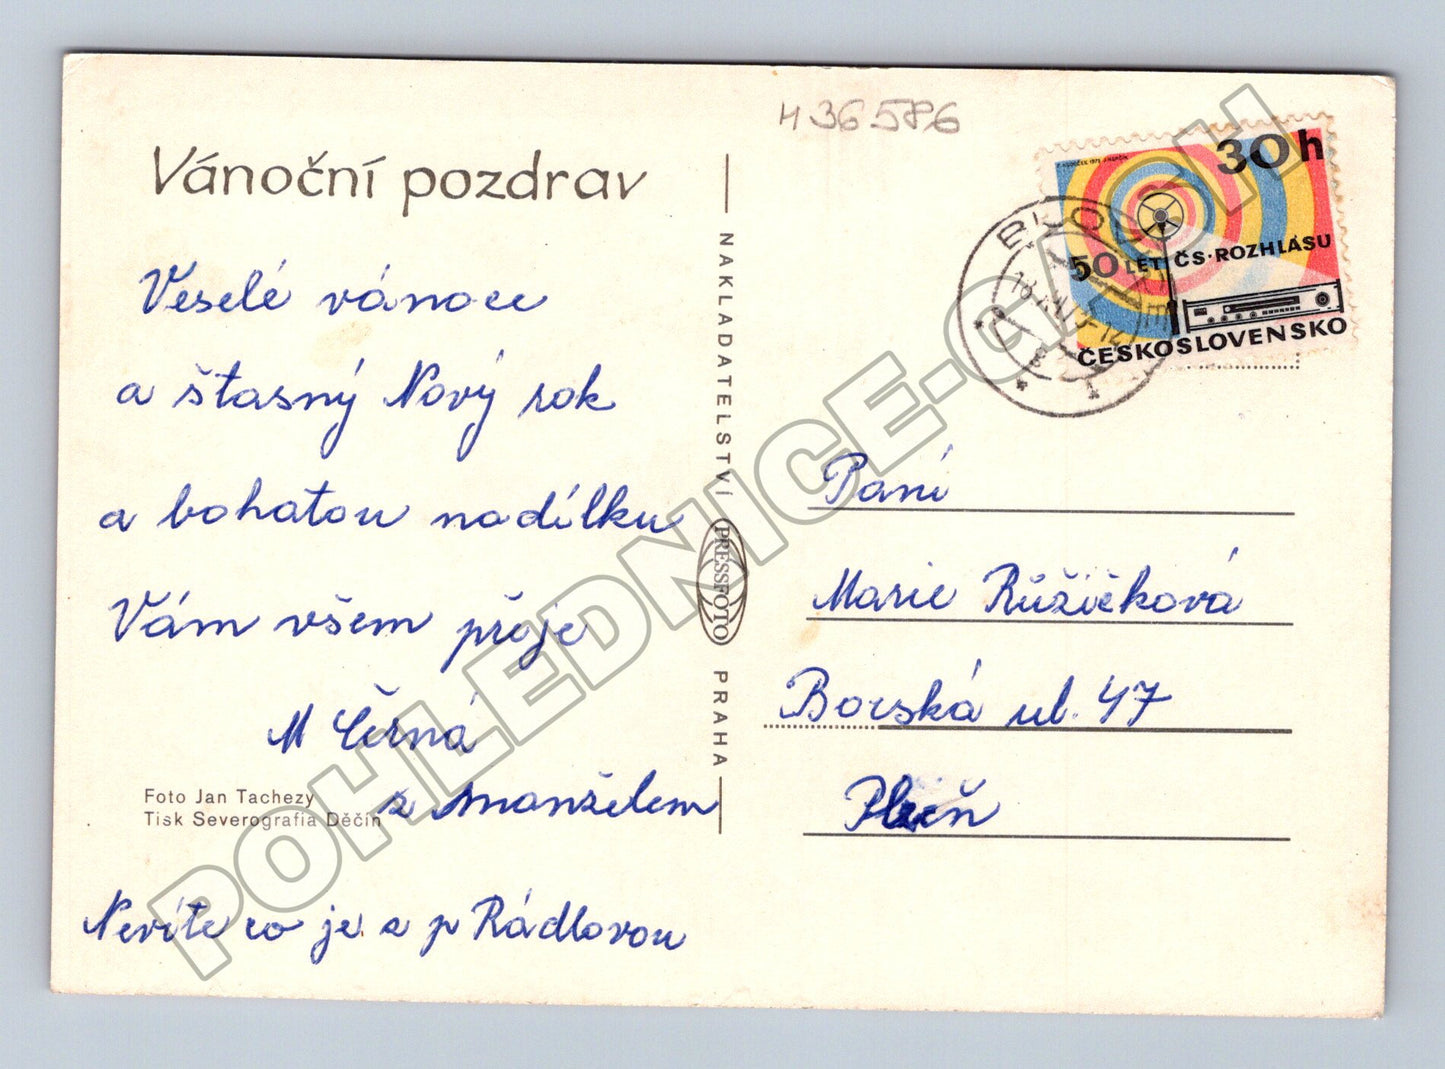 Vánoční pozdrav
Veselé vánoce
a šťasný Nový rok
a bohatou nadílku
Vám všem přeje
M Černá
z manželem
Foto Jan Tachezy
Tisk Severografia Děčín
Nevíte co je z p Rádlovou
NAKLADATELSTVÍ
PRESSFOTO
PRAHA
H36586
30h
50 LET ČS·ROZHLASU
ČESKOSLOVENSKO
Paní
Marie Růžičková
Borská ul. 47
Plzeň
POHLEDNICE-GASCH